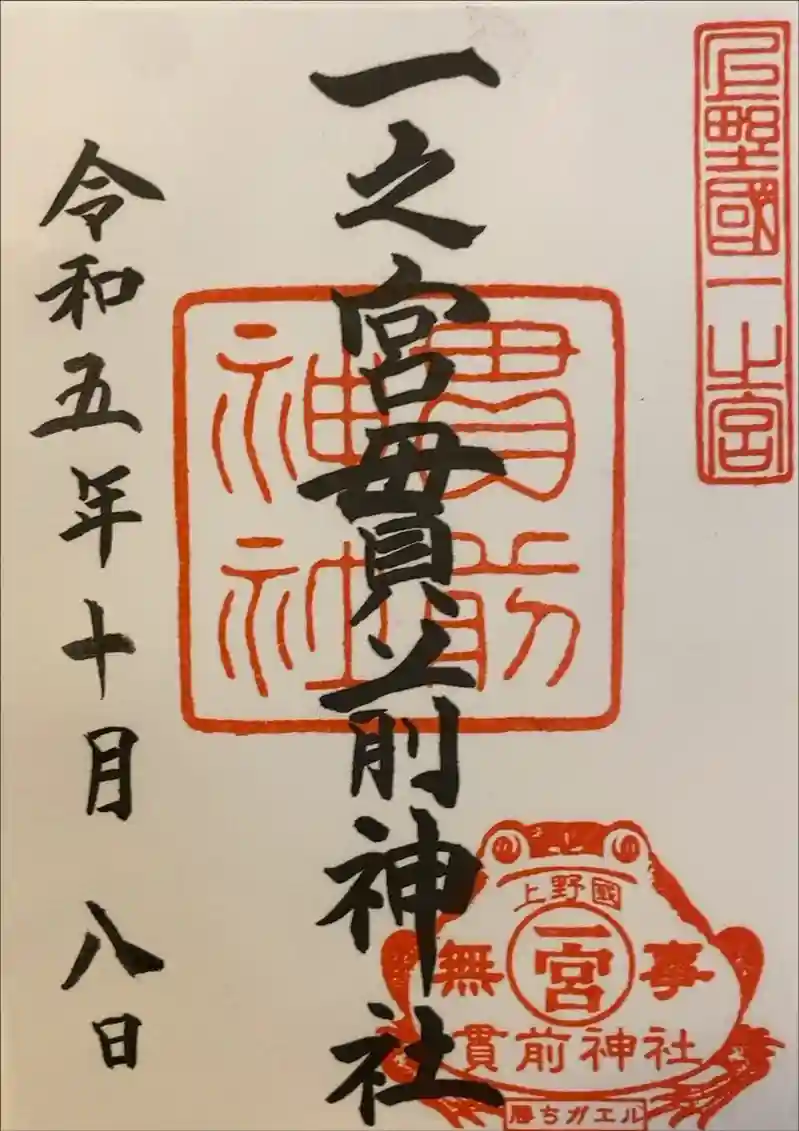 上野國一之宮
一之宮貫前神社
貫前
神社
令和五年十月 八日
上野國
一宮
無事
貫前神社
勝ちガエル